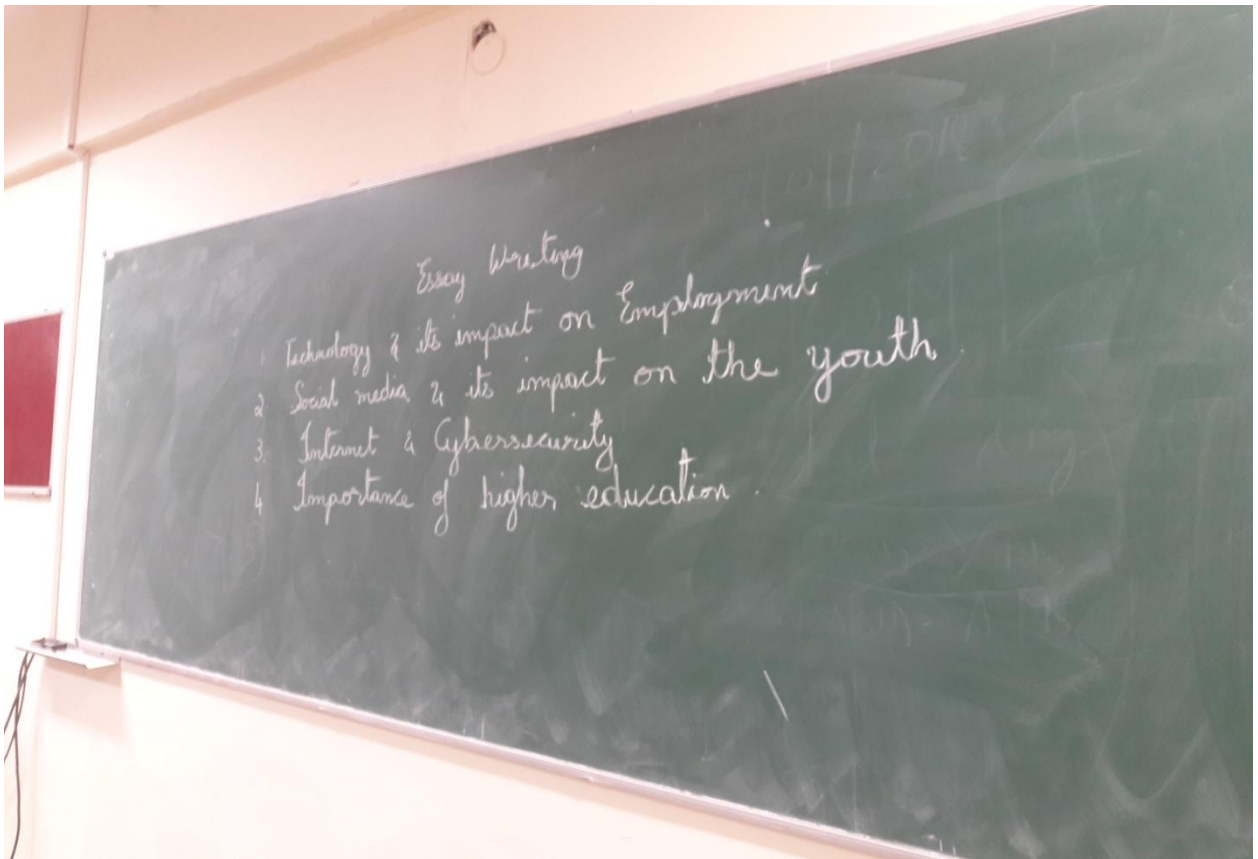 Essay Writing
1 Technology & its impact on Employment
2 Social media & its impact on the youth
3. Internet & Cybersecurity
4 Importance of higher education.